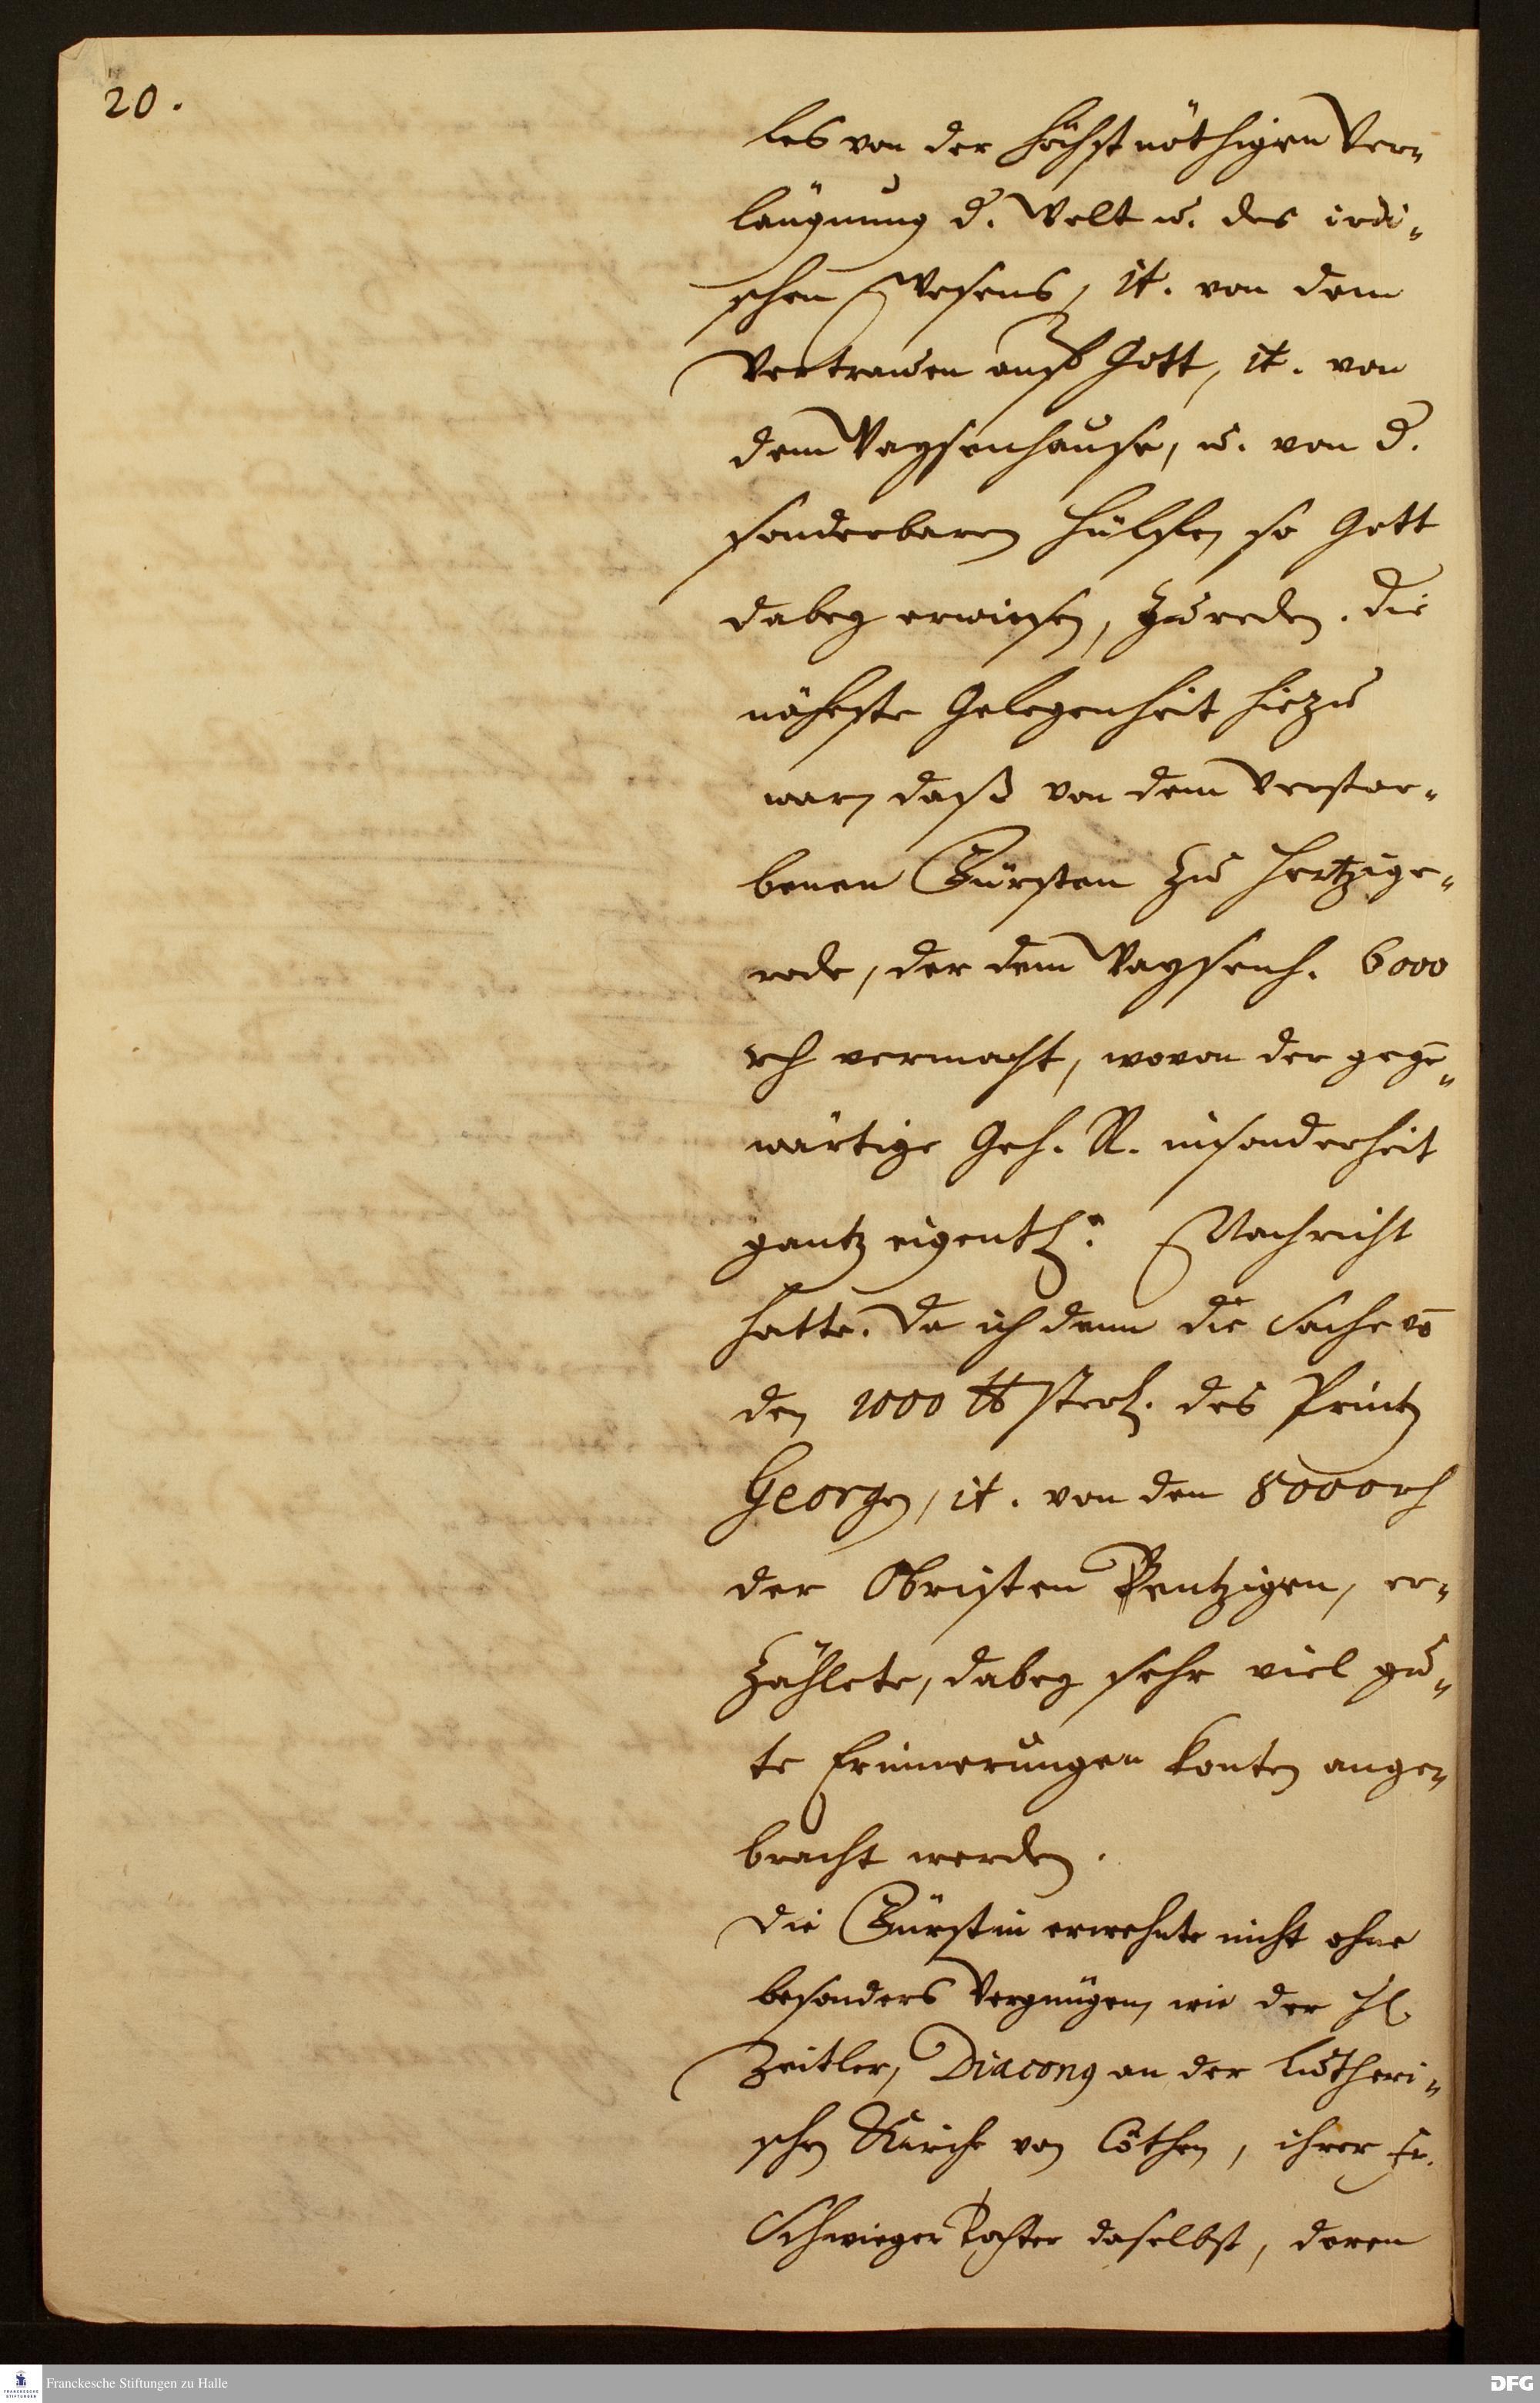 20.
les von der höchst nöthigen Ver-
läugnung d. Welt u. des irdi-
schen Wesens, it. von dem
Vertrauen auf Gott, it. von
dem Waysenhause, u. von d.
sonderbaren Hülffe, so Gott
dabey erwiesen, zu reden. Die
näheste Gelegenheit hiezu
war, daß von dem verstor-
benen Fürsten zu Hertzge-
rode, der dem Waysenh. 6000
rth vermacht, wovon der gegē-
wärtige Geh. R. insonderheit
gantz eigentl. Nachricht
hatte. Da ich denn die Sache vō
den 1000 ℔ Sterl. des Printz
Georgen, it. von den 8000 rth
der Obristen Pentzigen, er-
zählete, dabey sehr viel gu-
te Erinnerungen konten ange-
bracht werden.
Die Fürstin erwehnte nicht ohne
besonders Vergnügen, wie der H.
Zeitler, Diacong an der Lutheri-
schen Kirche von Cöthen, ihrer Fr.
Schwieger Tochter daselbst, deren
Franckesche Stiftungen zu Halle
FRANCKESCHE
STIFTUNGEN
DFG